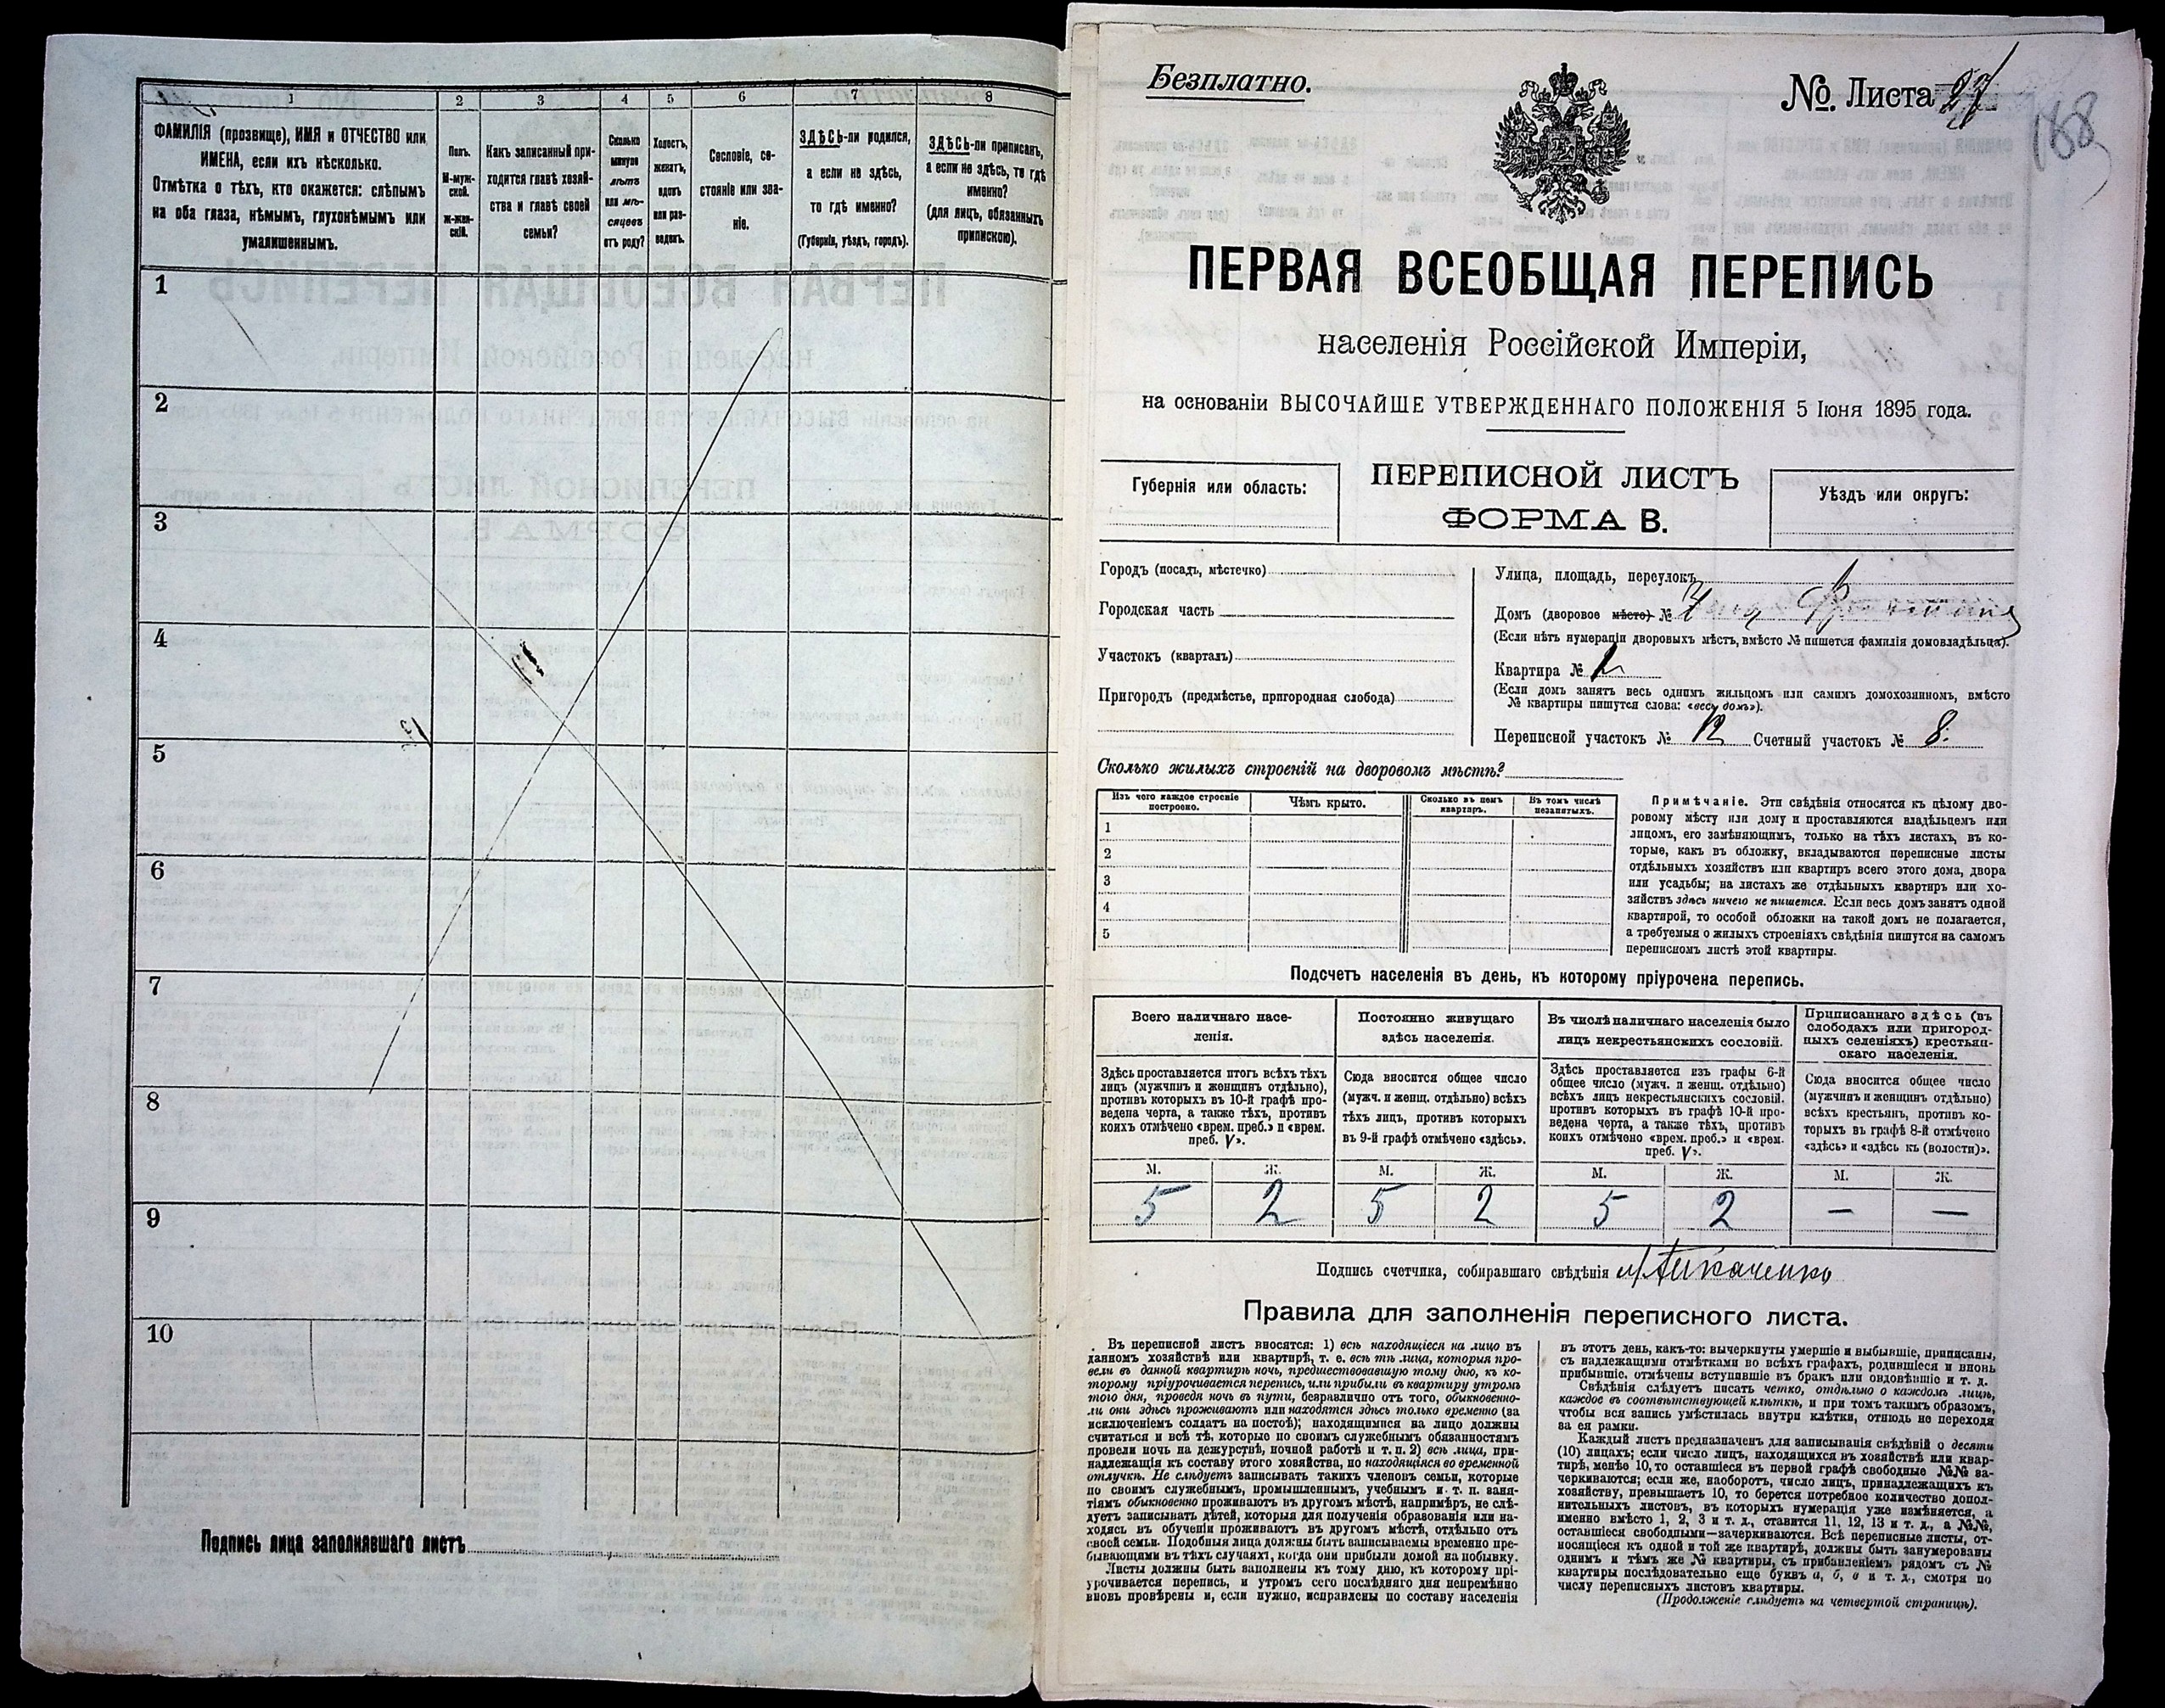 1
2
3
4
5
6
7
8
ФАМИЛІЯ (прозвище), ИМЯ и ОТЧЕСТВО или
ИМЕНА, если ихъ нѣсколько.
Отмѣтка о тѣхъ, кто окажется: слѣпымъ
на оба глаза, нѣмымъ, глухонѣмымъ или
умалишеннымъ.
Полъ.
М-муж-
ской.
Ж-жен-
скій.
Какъ записанный при-
ходится главѣ хозяй-
ства и главѣ своей
семьи?
Сколько
минуло
лѣтъ
или мѣ-
сяцевъ
отъ роду?
Холостъ,
женатъ,
вдовъ
или раз-
веденъ.
Сословіе, со-
стояніе или зва-
ніе.
ЗДѢСЬ-ли родился,
а если не здѣсь,
то гдѣ именно?
(Губернія, уѣздъ, городъ).
ЗДѢСЬ-ли приписанъ,
а если не здѣсь, то гдѣ
именно?
(для лицъ, обязанныхъ
припискою).
1
2
3
4
5
6
7
8
9
10
Подпись лица заполнявшаго листъ
Безплатно.
№. Листа
188
ПЕРВАЯ ВСЕОБЩАЯ ПЕРЕПИСЬ
населенія Россійской Имперіи,
на основаніи ВЫСОЧАЙШЕ УТВЕРЖДЕННАГО ПОЛОЖЕНІЯ 5 Іюня 1895 года.
Губернія или область:
ПЕРЕПИСНОЙ ЛИСТЪ
ФОРМА В.
Уѣздъ или округъ:
Городъ (посадъ, мѣстечко)
Городская часть
Участокъ (кварталъ)
Пригородъ (предмѣстье, пригородная слобода)
Улица, площадь, переулокъ
Домъ (дворовое мѣсто) №
(Если нѣтъ нумераціи дворовыхъ мѣстъ, вмѣсто № пишется фамилія домовладѣльца).
Квартира № 2
(Если домъ занятъ весь однимъ жильцомъ или самимъ домохозяиномъ, вмѣсто
№ квартиры пишутся слова: «весь домъ»).
Переписной участокъ № 12 Счетный участокъ № 8.
Сколько жилыхъ строеній на дворовомъ мѣстѣ?
Изъ чего каждое строеніе
построено.
Чѣмъ крыто.
Сколько въ немъ
квартиръ.
Въ томъ числѣ
незанятыхъ.
1
2
3
4
5
Примѣчаніе. Эти свѣдѣнія относятся къ цѣлому дво-
ровому мѣсту или дому и проставляются владѣльцемъ или
лицомъ, его замѣняющимъ, только на тѣхъ листахъ, въ ко-
торые, какъ въ обложку, вкладываются переписные листы
отдѣльныхъ хозяйствъ или квартиръ всего этого дома, двора
или усадьбы; на листахъ же отдѣльныхъ квартиръ или хо-
зяйствъ здѣсь ничего не пишется. Если весь домъ занятъ одной
квартирой, то особой обложки на такой домъ не полагается,
а требуемыя о жилыхъ строеніяхъ свѣдѣнія пишутся на самомъ
переписномъ листѣ этой квартиры.
Подсчетъ населенія въ день, къ которому пріурочена перепись.
Всего наличнаго насе-
ленія.
Здѣсь проставляется итогъ всѣхъ тѣхъ
лицъ (мужчинъ и женщинъ отдѣльно),
противъ которыхъ въ 10-й графѣ про-
ведена черта, а также тѣхъ, противъ
коихъ отмѣчено «врем. преб.» и «врем.
преб. V».
Постоянно живущаго
здѣсь населенія.
Сюда вносится общее число
(мужч. и женщ. отдѣльно) всѣхъ
тѣхъ лицъ, противъ которыхъ
въ 9-й графѣ отмѣчено «здѣсь».
Въ числѣ наличнаго населенія было
лицъ некрестьянскихъ сословій.
Здѣсь проставляется изъ графы 6-й
общее число (мужч. и женщ. отдѣльно)
всѣхъ лицъ некрестьянскихъ сословій,
противъ которыхъ въ графѣ 10-й про-
ведена черта, а также тѣхъ, противъ
коихъ отмѣчено «врем. преб.» и «врем.
преб. V».
Приписаннаго здѣсь (въ
слободахъ или пригород-
ныхъ селеніяхъ) крестьян-
скаго населенія.
Сюда вносится общее число
(мужчинъ и женщинъ отдѣльно)
всѣхъ крестьянъ, противъ ко-
торыхъ въ графѣ 8-й отмѣчено
«здѣсь» и «здѣсь къ (волости)».
М. Ж. М. Ж. М. Ж. М. Ж.
5 2 5 2 5 2 — —
Подпись счетчика, собиравшаго свѣдѣнія
Правила для заполненія переписного листа.
Въ переписной листъ вносятся: 1) всѣ находящіеся на лицо въ
данномъ хозяйствѣ или квартирѣ, т. е. всѣ тѣ лица, которыя про-
вели въ данной квартирѣ ночь, предшествовавшую тому дню, къ ко-
торому пріурочивается перепись, или прибыли въ квартиру утромъ
того дня, проведя ночь въ пути, безразлично отъ того, обыкновенно-
ли они здѣсь проживаютъ или находятся здѣсь только временно (за
исключеніемъ солдатъ на постоѣ); находящимися на лицо должны
считаться и всѣ тѣ, которые по своимъ служебнымъ обязанностямъ
провели ночь на дежурствѣ, ночной работѣ и т. п. 2) всѣ лица, при-
надлежащія къ составу этого хозяйства, но находящіяся во временной
отлучкѣ. Не слѣдуетъ записывать такихъ членовъ семьи, которые
по своимъ служебнымъ, промышленнымъ, учебнымъ и т. п. заня-
тіямъ обыкновенно проживаютъ въ другомъ мѣстѣ, напримѣръ, не слѣ-
дуетъ записывать дѣтей, которыя для полученія образованія или на-
ходясь въ обученіи проживаютъ въ другомъ мѣстѣ, отдѣльно отъ
своей семьи. Подобныя лица должны быть записываемы временно пре-
бывающими въ тѣхъ случаяхъ, когда они прибыли домой на побывку.
Листы должны быть заполнены къ тому дню, къ которому прі-
урочивается перепись, и утромъ сего послѣдняго дня непремѣнно
вновь провѣрены и, если нужно, исправлены по составу населенія
въ этотъ день, какъ-то: вычеркнуты умершіе и выбывшіе, приписаны,
съ надлежащими отмѣтками во всѣхъ графахъ, родившіеся и вновь
прибывшіе, отмѣчены вступившіе въ бракъ или овдовѣвшіе и т. д.
Свѣдѣнія слѣдуетъ писать четко, отдѣльно о каждомъ лицѣ,
каждое въ соотвѣтствующей клѣткѣ, и при томъ такимъ образомъ,
чтобы вся запись умѣстилась внутри клѣтки, отнюдь не переходя
за ея рамки.
Каждый листъ предназначенъ для записыванія свѣдѣній о десяти
(10) лицахъ; если число лицъ, находящихся въ хозяйствѣ или квар-
тирѣ, менѣе 10, то оставшіеся въ первой графѣ свободные №№ за-
черкиваются; если же, наоборотъ, число лицъ, принадлежащихъ къ
хозяйству, превышаетъ 10, то берется потребное количество допол-
нительныхъ листовъ, въ которыхъ нумерація уже измѣняется, а
именно вмѣсто 1, 2, 3 и т. д., ставится 11, 12, 13 и т. д., а №№,
оставшіеся свободными—зачеркиваются. Всѣ переписные листы, от-
носящіеся къ одной и той же квартирѣ, должны быть занумерованы
однимъ и тѣмъ же № квартиры, съ прибавленіемъ рядомъ съ №
квартиры послѣдовательно еще буквъ а, б, в и т. д., смотря по
числу переписныхъ листовъ квартиры.
(Продолженіе слѣдуетъ на четвертой страницѣ).